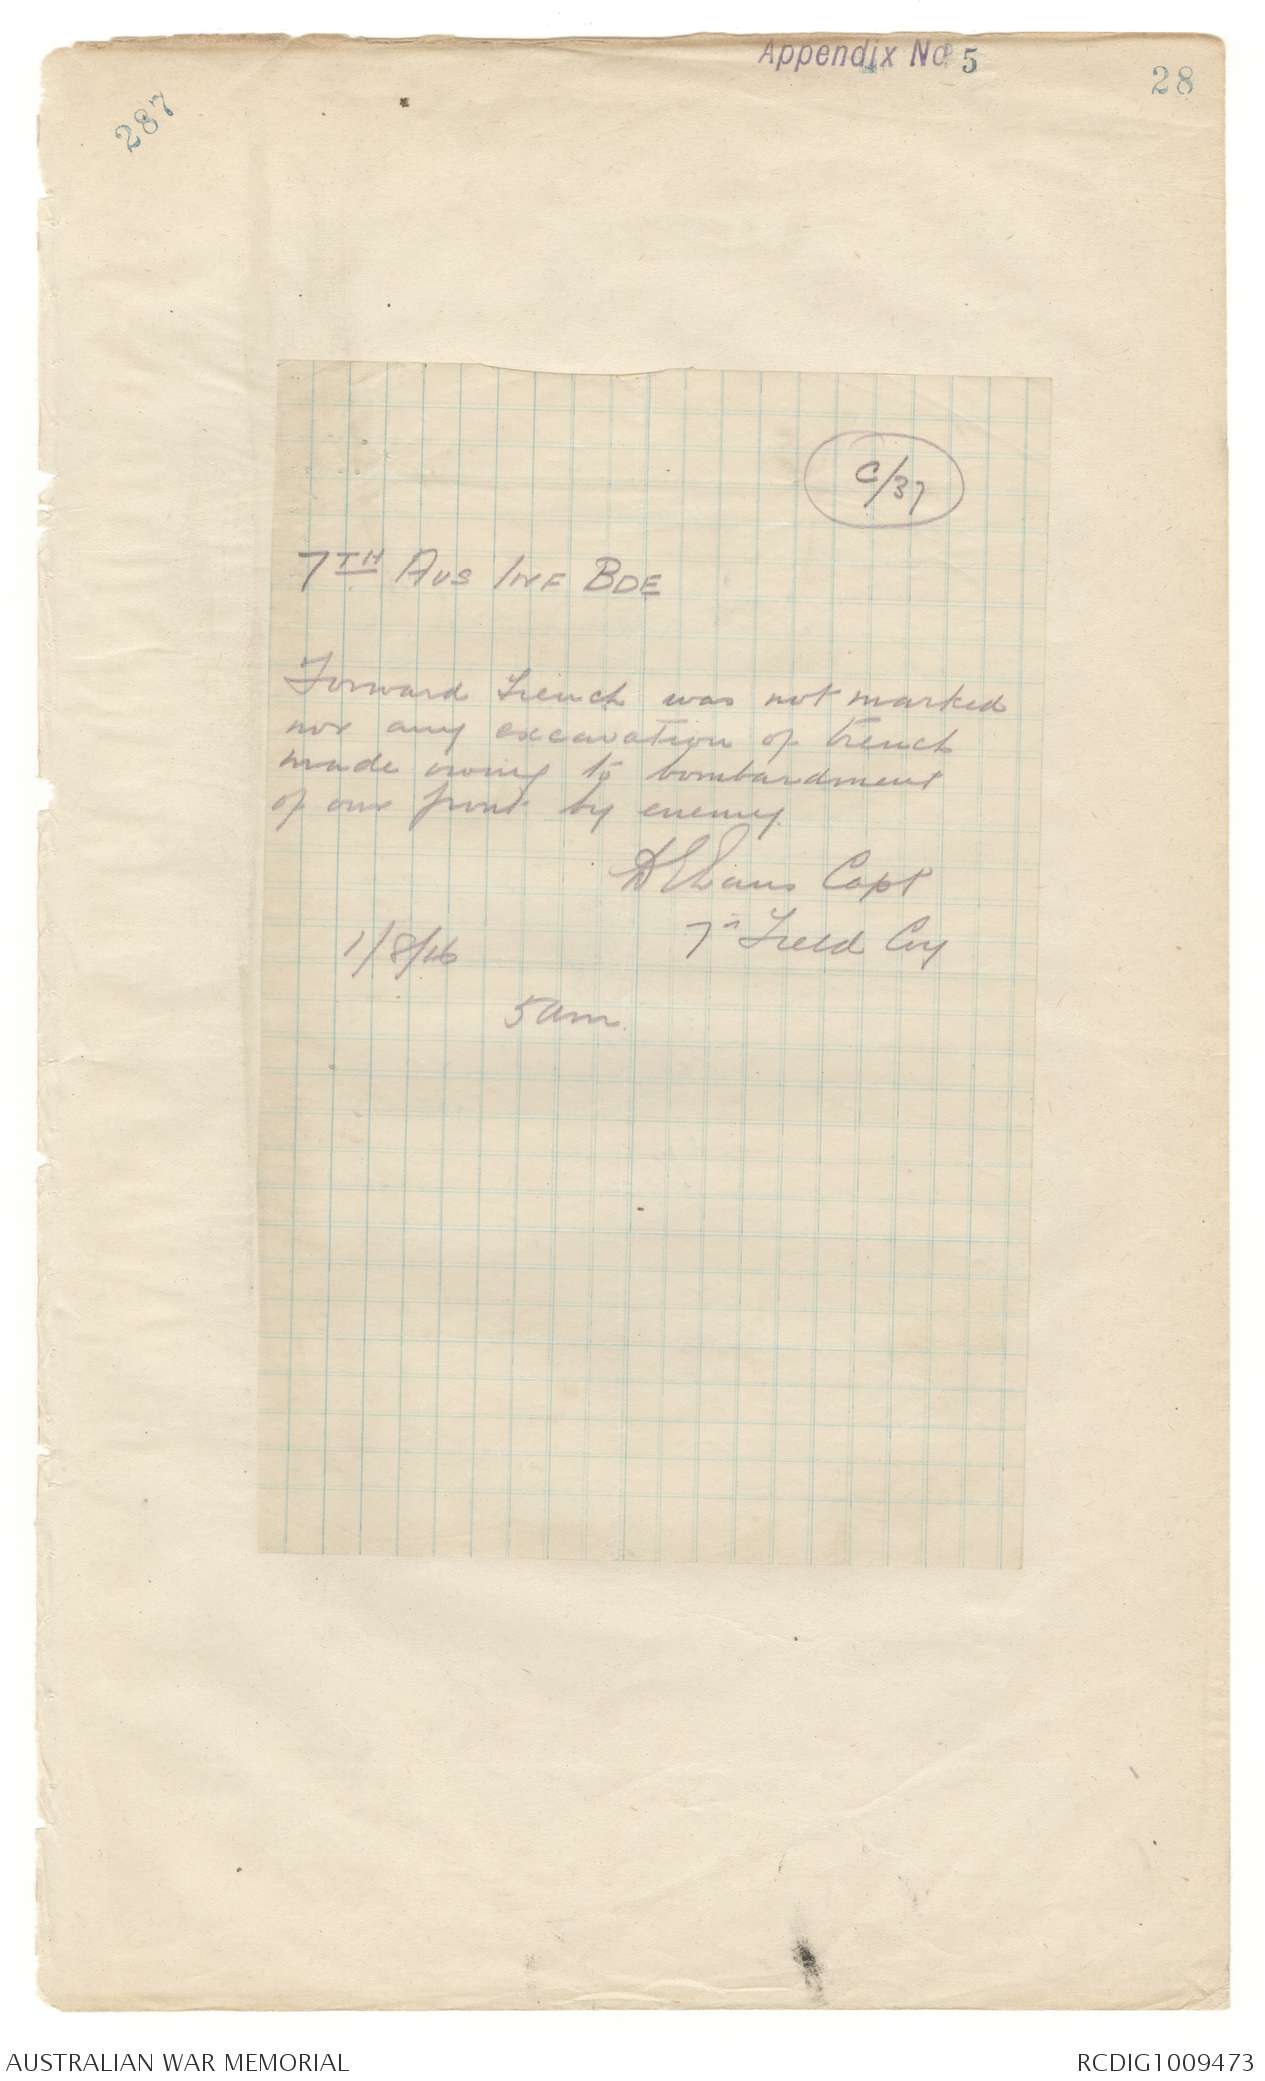 Appendix No 5
28
287
C/37
7TH AUS INF BDE
Forward trench was not marked
nor any excavation of trench
made owing to bombardment
of our front by enemy.
Evans Capt
7th Field Coy
1/8/16
5 am.
AUSTRALIAN WAR MEMORIAL
RCDIG1009473